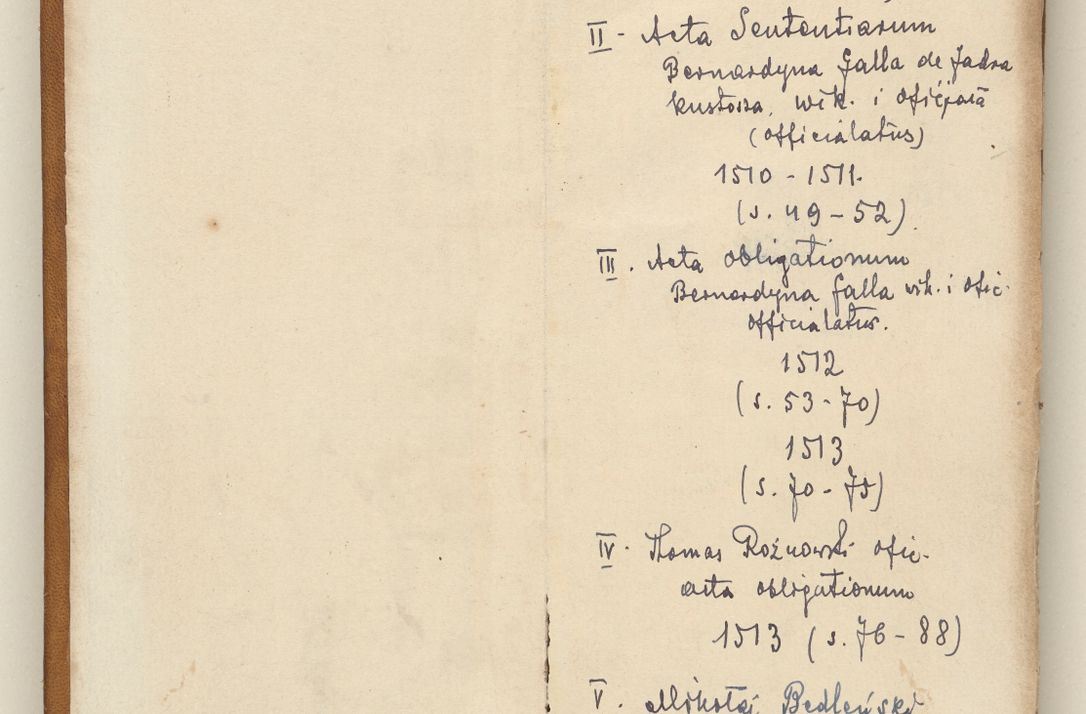 II. Acta Sententiarum
Bernardyna Galla de Jadra
kustosza, wik. i oficjała
(officialatus)
1510 - 1511.
(s. 49 - 52).
III. Acta obligationum
Bernardyna Galla wik. i ofic.
officialatus.
1512
(s. 53 - 70)
1513
(s. 70 - 75)
IV. Thomas Rożnowski ofic.
acta obligationum
1513 (s. 76 - 88)
V. Mikołaj Bedleński